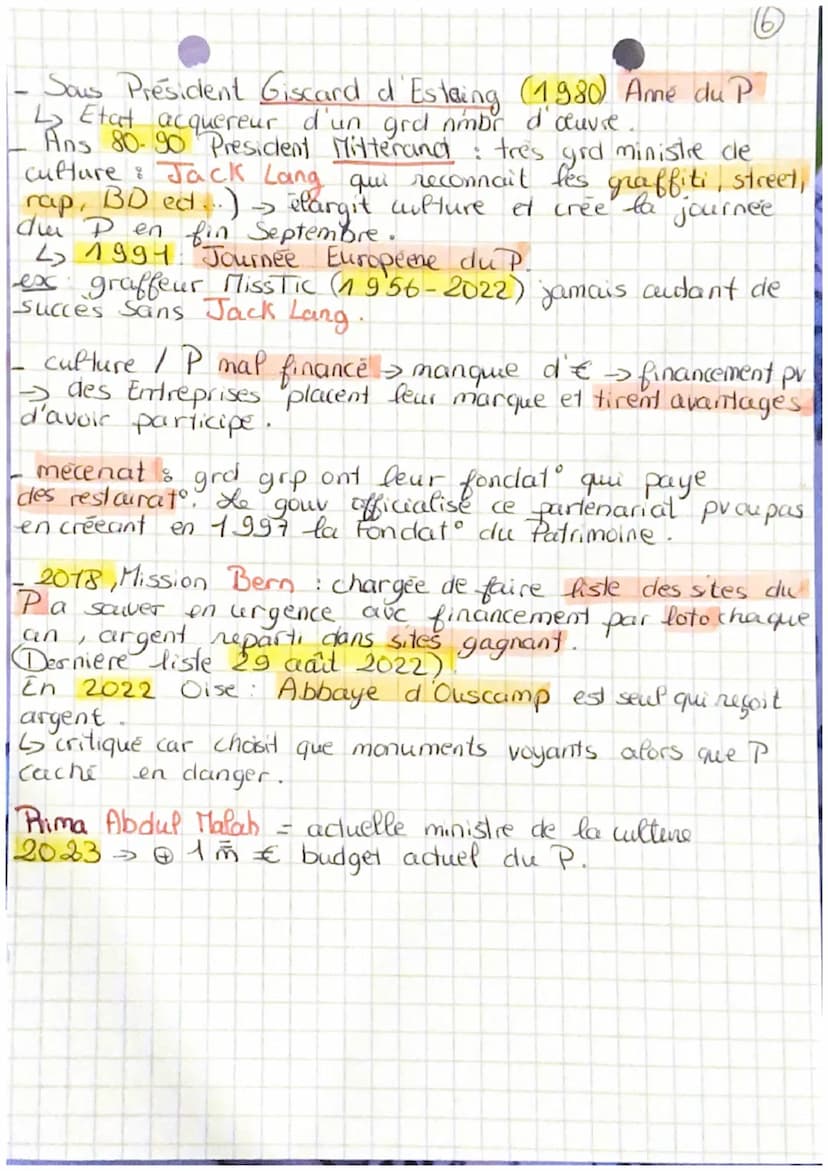 6
- Sous Président Giscard d'Estaing (1980) Année du P
↳ Etat acquereur d'un grd nmbr d'œuvre.
- Ans 80-90 Président Mitterand : très grd ministre de
culture : Jack Lang qui reconnait les graffiti, street,
rap, BD ect...) → élargit culture et crée la journée
du P en fin Septembre.
↳ 1991 : Journée Européene du P.
ex graffeur MissTic (1956-2022) jamais autant de
succès sans Jack Lang.
- culture / P mal financé → manque d'€ → financement pv
→ des Entreprises placent leur marque et tirent avantages
d'avoir participé.
- mécenat : grd grp ont leur fondat° qui paye
des restaurat°. Le gouv officialise ce partenariat pv ou pas
en créeant en 1997 la Fondat° du Patrimoine.
- 2018, Mission Bern : chargée de faire liste des sites du
P a sauver en urgence avc financement par loto chaque
an, argent réparti dans sites gagnant.
(Derniere liste 29 août 2022)
En 2022 Oise : Abbaye d'Ouscamp est seul qui reçoit
argent.
↳ critiqué car choisit que monuments voyants alors que P
caché en danger.
Rima Abdul Malah = actuelle ministre de la culture
2023 → ⊕ 1 m̄ € budget actuel du P.